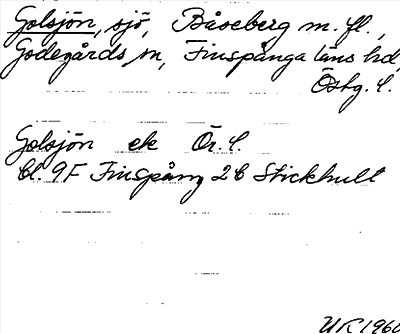 Golsjön, sjö, Båseberg m. fl.,
Godegårds sn, Finspånga läns hd,
Östg. l.
Golsjön ek Ör. l.
bl. 9F Finspång 2 b Stickhult
UR 1960